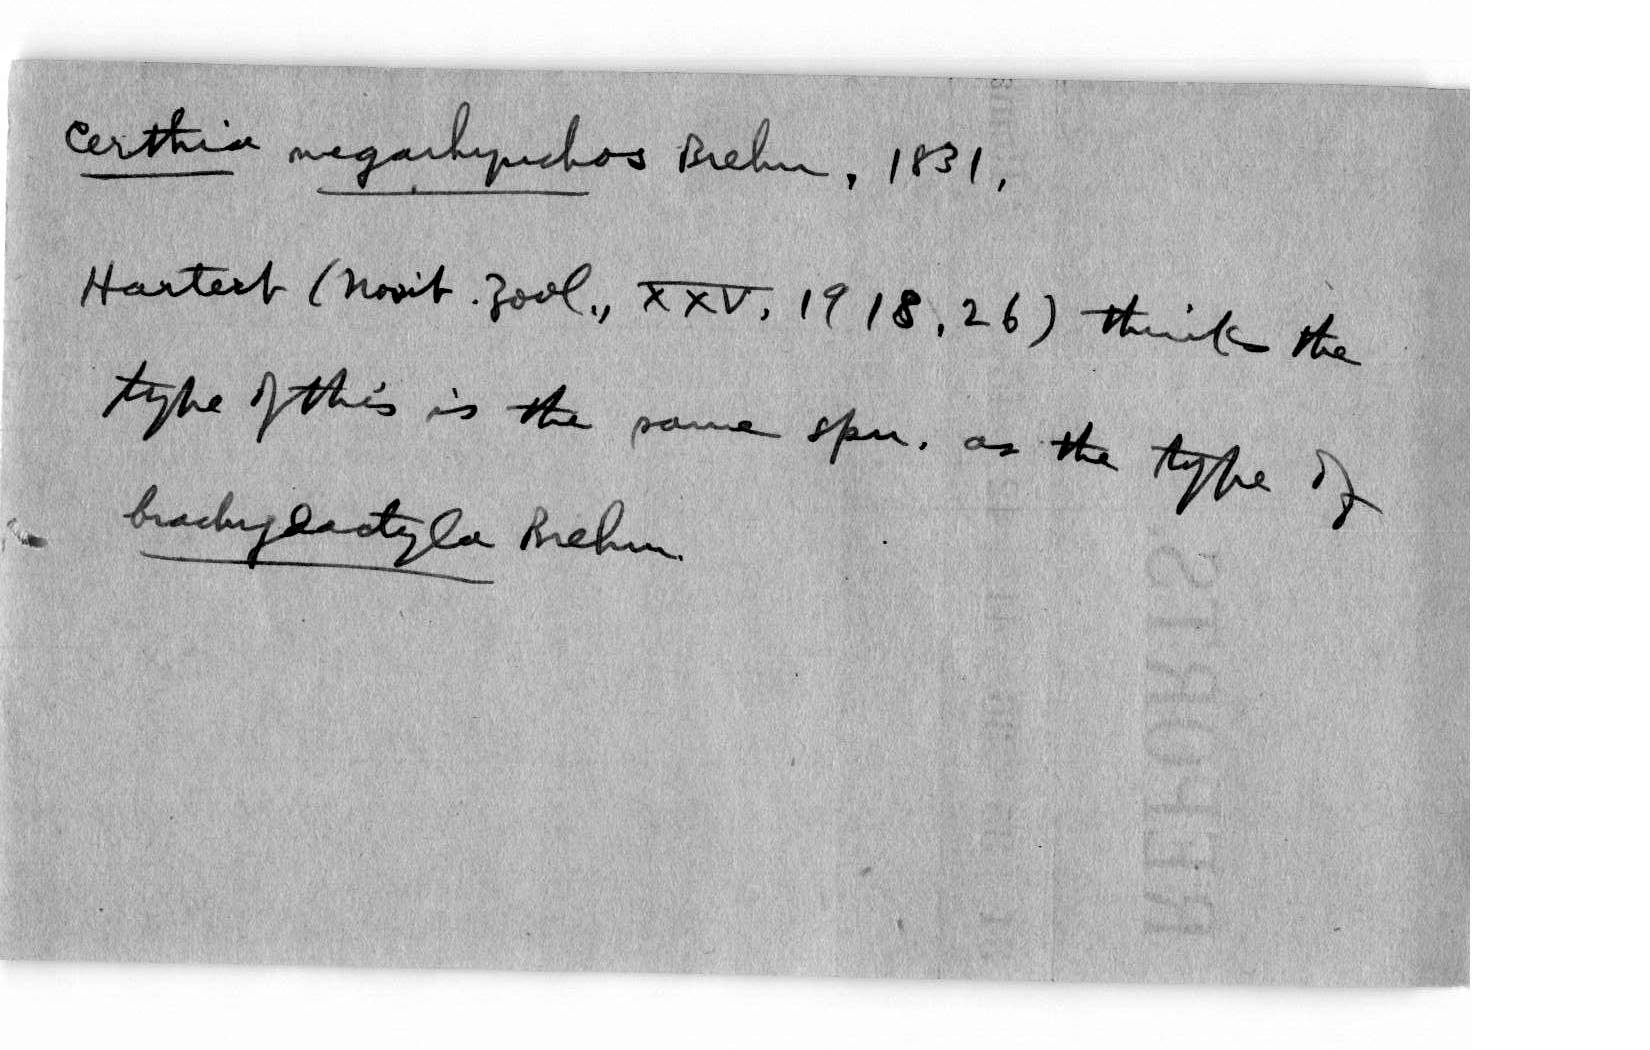 Certhia megarhynchos Brehm, 1831,
Hartert (Novit. Zool., XXV, 1918, 26) thinks the
type of this is the same spn. as the type of
brachydactyla Brehm.
REPORTS.